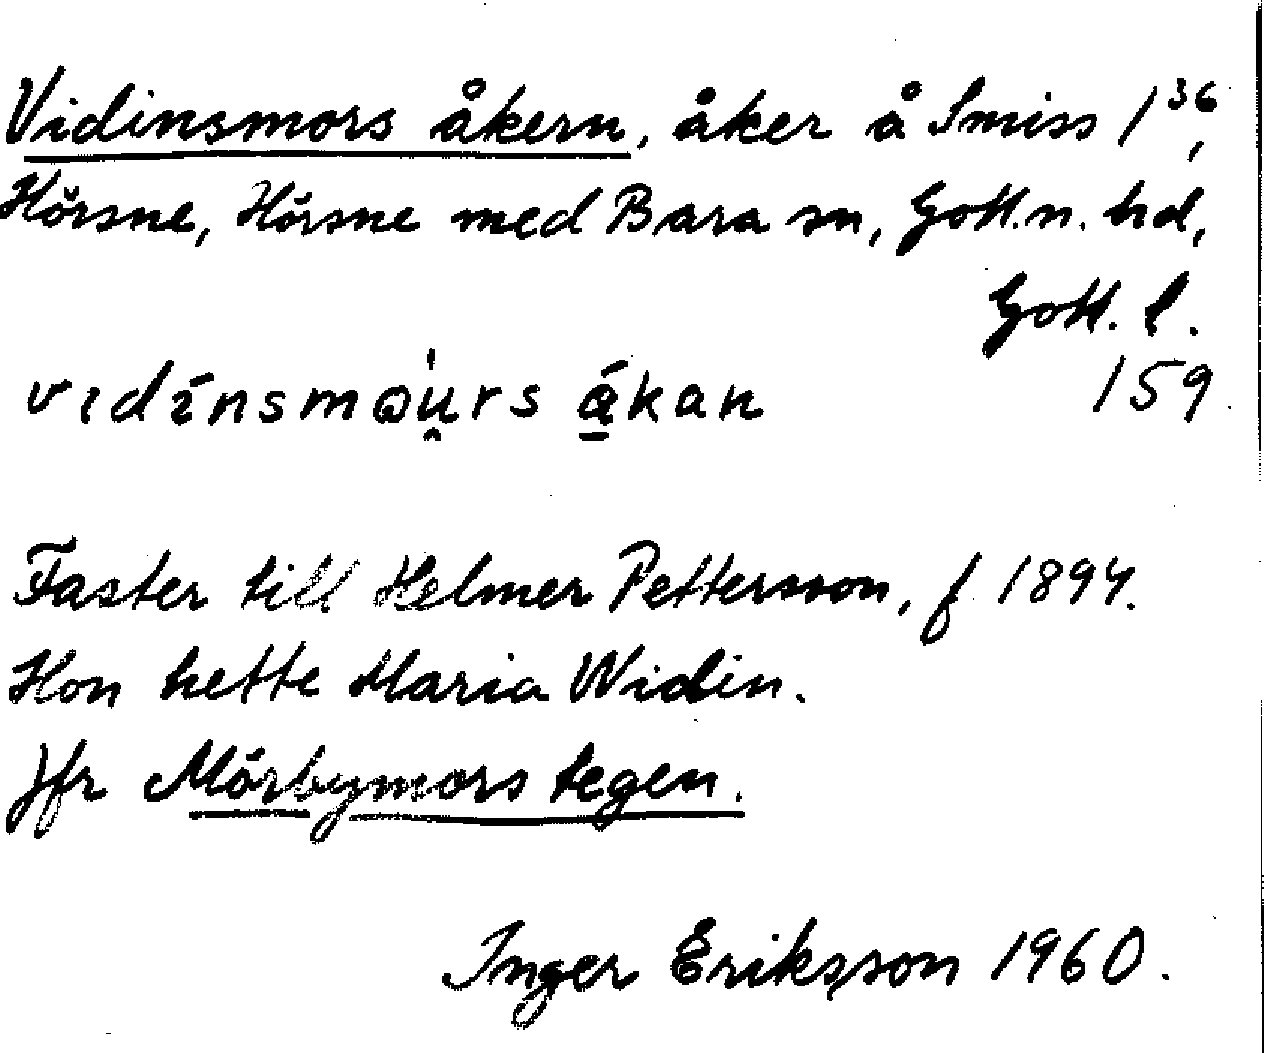 Vidinsmors åkern, åker å Smiss 1³⁶,
Hörsne, Hörsne med Bara sn, Gotl.n. hd,
Gotl. l.
159
vidínsmou̯rs åkan
Faster till Helmer Pettersson, f 1894.
Hon hette Maria Widin.
Jfr Mörbymors tegen.
Inger Eriksson 1960.